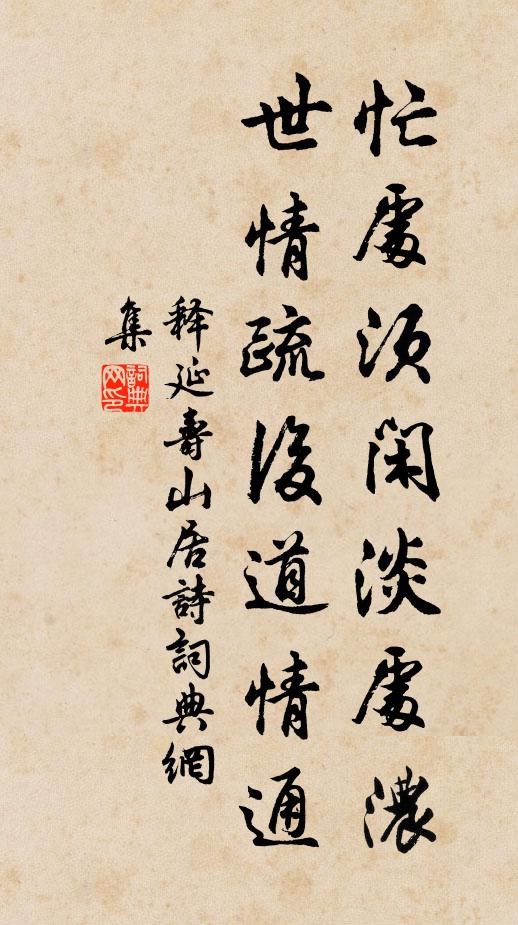 忙處須閑淡處濃
世情疏後道情通
释延壽山居詩詞典網
集
詞典网印